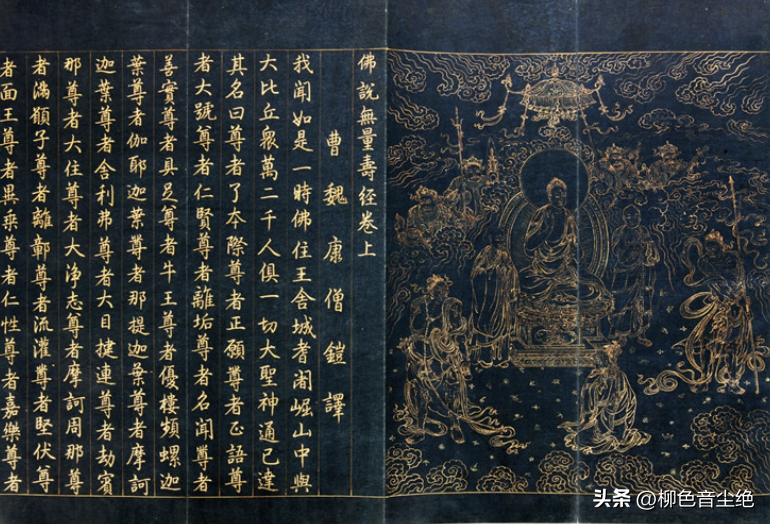 佛說無量壽經卷上
曹魏康僧鎧譯
我聞如是一時佛住王舍城耆闍崛山中與
大比丘衆萬二千人俱一切大聖神通已達
其名曰尊者了本際尊者正願尊者正語尊
者大號尊者仁賢尊者離垢尊者名聞尊者
善實尊者具足尊者牛王尊者優樓頻螺迦
葉尊者伽耶迦葉尊者那提迦葉尊者摩訶
迦葉尊者舍利弗尊者大目揵連尊者劫賓
那尊者大住尊者大淨志尊者摩訶周那尊
者滿願子尊者離鄣尊者流灌尊者堅伏尊
者面王尊者異乘尊者仁性尊者嘉樂尊者
头条 @柳色音尘绝